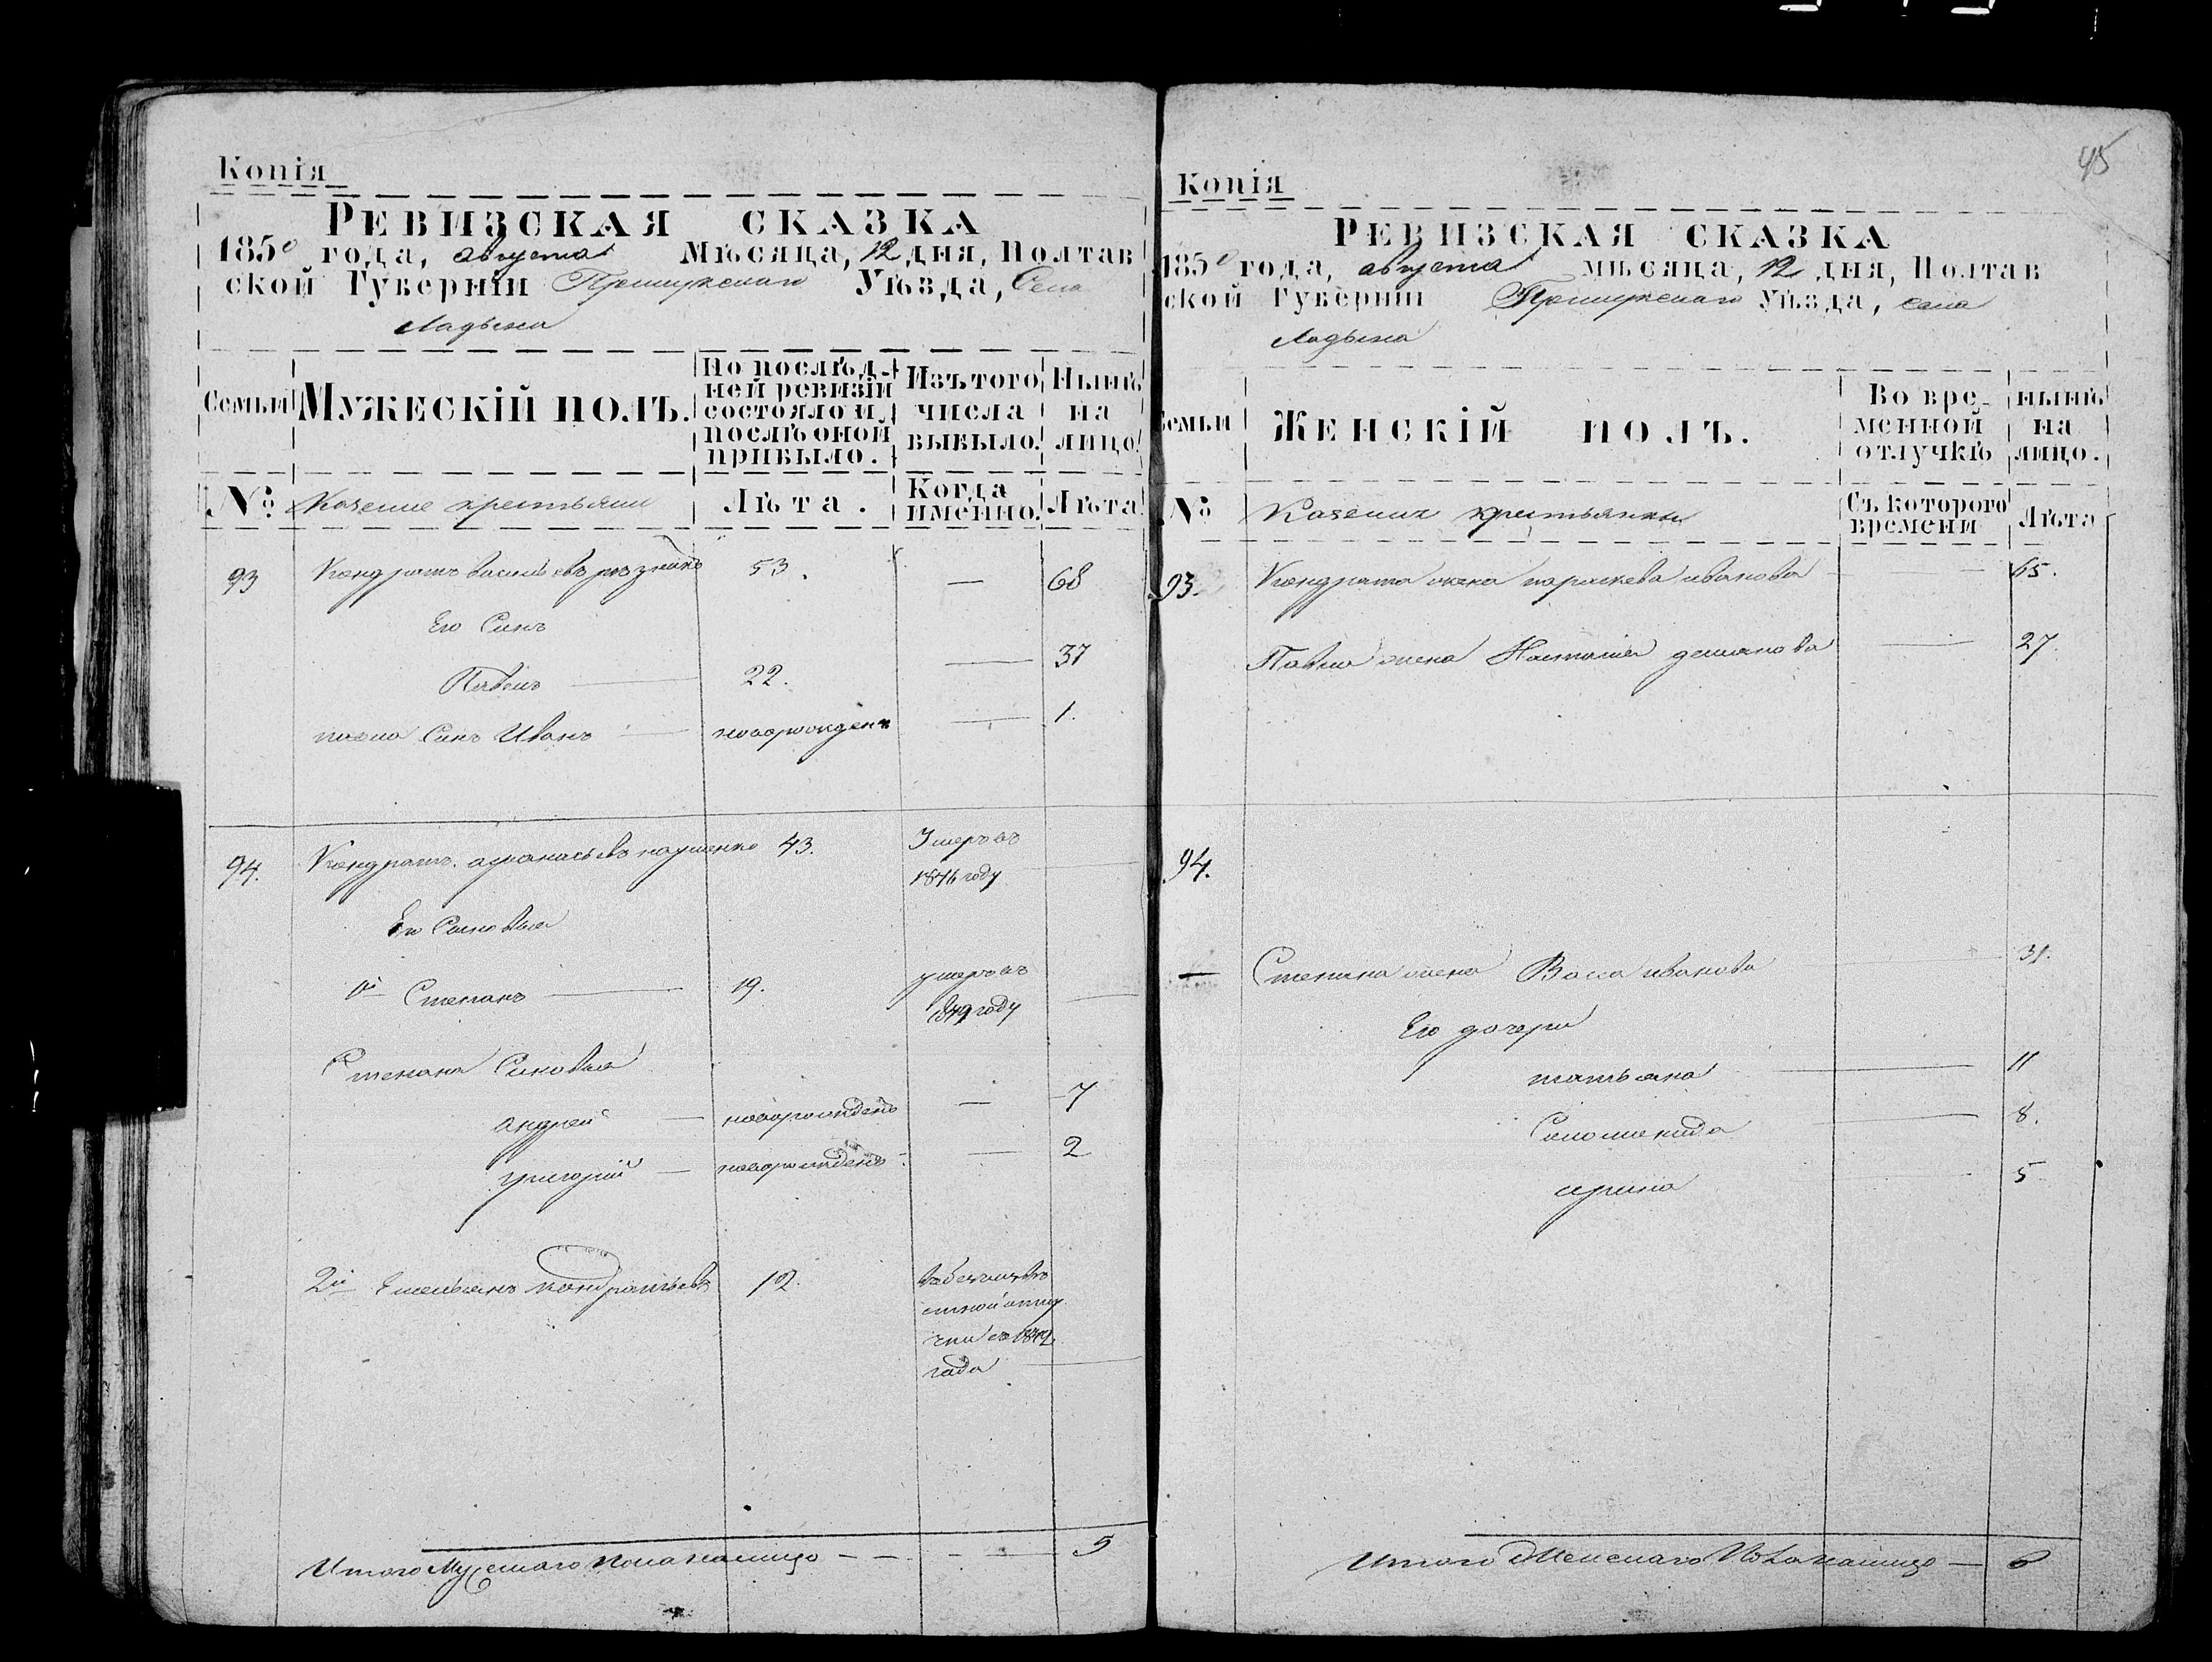 Копія
РЕВИЗСКАЯ СКАЗКА
1850 года, августа Мѣсяца, 12 дня, Полтав
ской Губерніи Прилуцкаго Уѣзда, Села
Ладына
Семьи
МУЖЕСКІЙ ПОЛЪ.
По послѣд-
ней ревизіи
состояло и
послѣ оной
прибыло.
Изъ того
числа
выбыло.
Нынѣ
на
лицо.
№
Казенные крестьяне
Лѣта.
Когда
именно.
Лѣта
93 Кондратъ васильевъ рѣзникъ 53. — 68
Его Синъ
Павелъ — 22. — 37
павла Синъ Иванъ — новорожденъ — 1.
94. Кондратъ афанасьевъ 43. Умеръ въ
1846 году
Его Синовья
1й Степанъ — 19. умеръ въ
1849 году
Степана Синовья
андрей — новорожденъ — 7
григорій — новорожденъ — 2
2й Емельянъ кондратьевъ 12. въ безизвѣ
стной отлу
чки съ
года
Итого Мужескаго пола налицо — 5
45
Копія
РЕВИЗСКАЯ СКАЗКА
1850 года, августа мѣсяца, 12 дня, Полтав
ской Губерніи Прилуцкаго Уѣзда, села
Ладына
Семьи
ЖЕНСКІЙ ПОЛЪ.
Во вре-
менной
отлучкѣ
нынѣ
на
лицо.
№
Казенных крестьянки
Съ котораго
времени
Лѣта
93. Кондрата жена параскева иванова — 65.
Павла жена Настасія демянова — 27.
94.
— Степана жена Васса иванова — 31.
Его дочери
татьяна — 11
Соломенида — 8.
ирина — 5
Итого Женскаго Пола налицо — 6